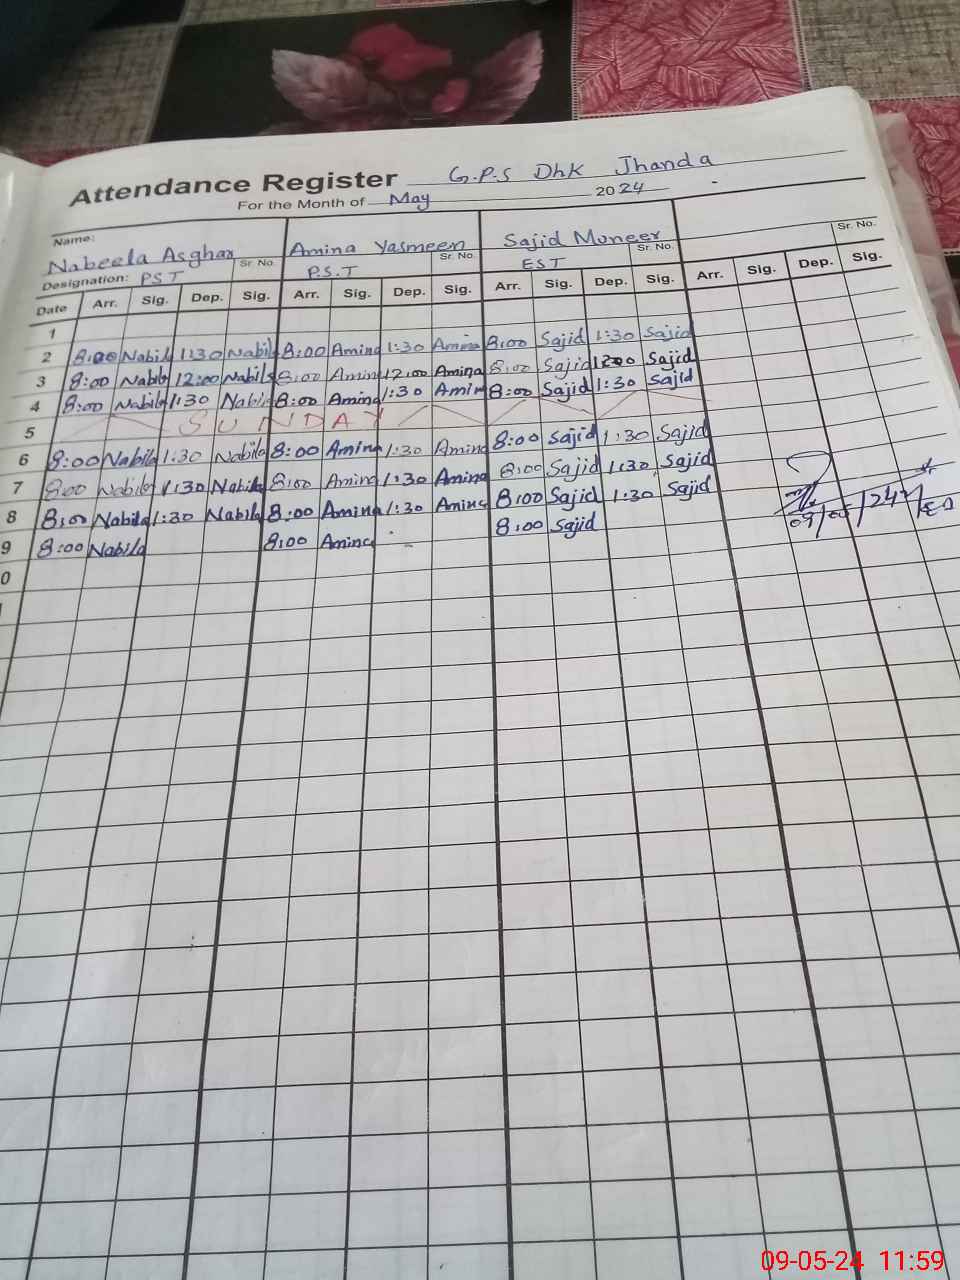 Attendance Register G.P.S Dhk Jhanda
For the Month of May 2024
Name: Nabeela Asghar Amina Yasmeen Sajid Muneer
Sr. No. Sr. No. Sr. No. Sr. No.
Designation: PST P.S.T EST
Date Arr. Sig. Dep. Sig. Arr. Sig. Dep. Sig. Arr. Sig. Dep. Sig. Arr. Sig. Dep. Sig.
1
2 8:00 Nabila 1:30 Nabila 8:00 Amina 1:30 Amina 8:00 Sajid 1:30 Sajid
3 8:00 Nabila 12:00 Nabila 8:00 Amina 12:00 Amina 8:00 Sajid 1200 Sajid
4 8:00 Nabila 1:30 Nabila 8:00 Amina 1:30 Amina 8:00 Sajid 1:30 Sajid
5 SUNDAY
6 8:00 Nabila 1:30 Nabila 8:00 Amina 1:30 Amina 8:00 Sajid 1:30 Sajid
7 8:00 Nabila 1:30 Nabila 8:00 Amina 1:30 Amina 8:00 Sajid 1:30 Sajid
8 8:00 Nabila 1:30 Nabila 8:00 Amina 1:30 Amina 8:00 Sajid 1:30 Sajid
9 8:00 Nabila 8:00 Amina 8:00 Sajid
09/05/24
0
09-05-24 11:59